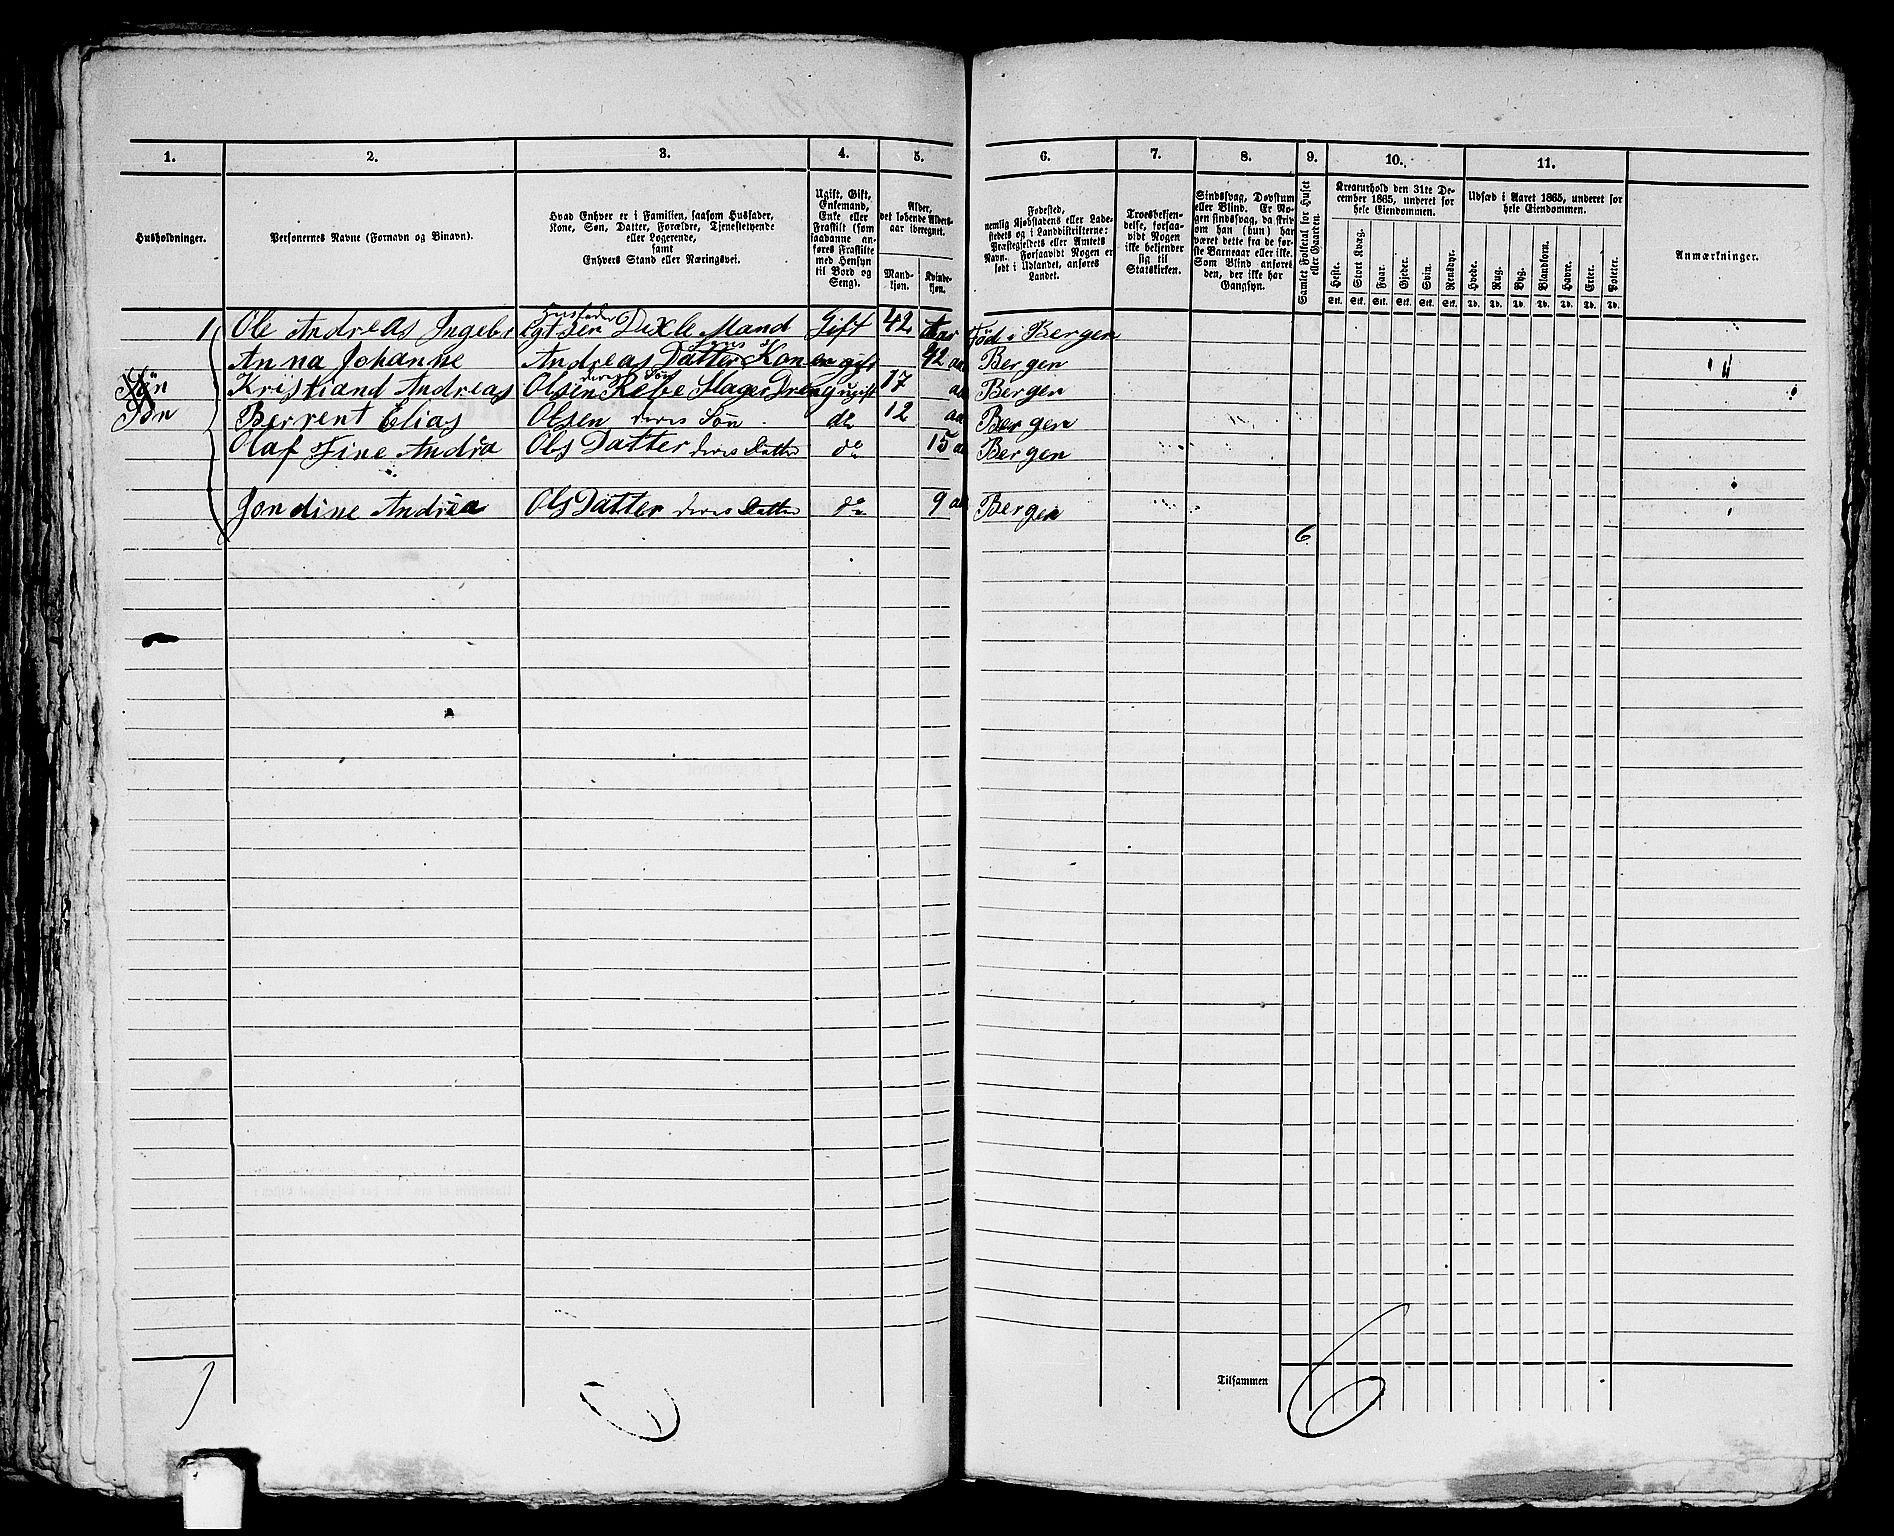 1. 2. 3. 4. 5. 6. 7. 8. 9. 10. 11.
Husholdninger.
Personernes Navne (Fornavn og Binavn).
Hvad Enhver er i Familien, saasom Husfader,
Kone, Søn, Datter, Forældre, Tjenestetyende
eller Logerende,
samt
Enhvers Stand eller Næringsvei.
Ugift, Gift,
Enkemand,
Enke eller
Fraskilt (som
saadanne an-
føres Fraskilte
med Hensyn
til Bord og
Seng).
Alder,
det løbende Alders-
aar iberegnet.
Mand-
kjøn.
Kvinde-
kjøn.
Fødested,
nemlig Kjøbstadens eller Lade-
stedets og i Landdistrikterne:
Præstegjeldets eller Amtets
Navn. Forsaavidt Nogen er
født i Udlandet, anføres
Landet.
Troesbekjen-
delse, forsaa-
vidt Nogen
ikke bekjender
sig til
Statskirken.
Sindssvag, Døvstum
eller Blind. Er No-
gen sindssvag, da skriv
om han (hun) har
været dette fra de før-
ste Barneaar eller ikke.
Som Blind anføres
den, der ikke har
Gangsyn.
Samlet Folketal for Huset
eller Gaarden.
Kreaturhold den 31te De-
cember 1865, underet for
hele Eiendommen.
Heste. Stort Kvæg. Faar. Gjeder. Svin. Rensdyr.
Stk. Stk. Stk. Stk. Stk. Stk.
Udsæd i Aaret 1865, underet for
hele Eiendommen.
Hvede. Rug. Byg. Blandkorn. Havre. Erter. Poteter.
Td. Td. Td. Td. Td. Td. Td.
Anmærkninger.
Husfader
1 Ole Andreas Ingebr egtsen Dixle Mand Gift 42 Aar Fød i Bergen
Anna Johanne Andreas Datter Konen gift 42 aar Bergen
deres Søn
Søn Kristiand Andreas Olsen Slager Dreng ugift 17 aar Bergen
Søn Berrent Elias Olsen deres Søn do 12 aar Bergen
Olaf Tine Andrea Ols Datter deres Datter do 15 aar Bergen
Jondine Andrea Ols Datter deres Datter do 9 aar Bergen
6
Tilsammen 6
1